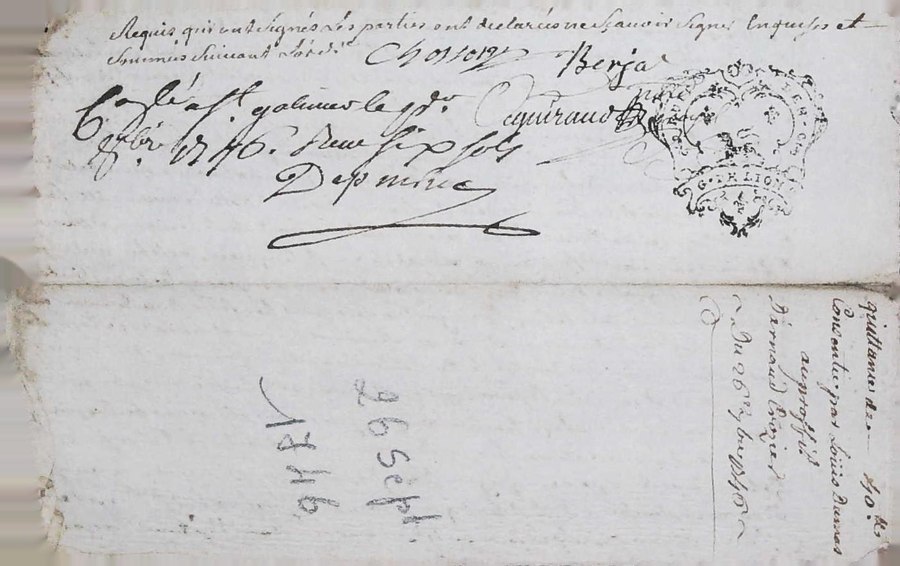 Requis qui ont signés Les parties ont declarées ne sçavoir signer Enquises et
Sommées suivant Lord.e
Chosson Berjat
Controllé a St. galmier le
8bre 1746. Reçu six sols
Depmine
G. DE LION
quittance de 40 #
Consentie par Louis Dumas
au proffit
D'arnaud Crozier
Du 26e 7bre 1746
26 Sept
1746